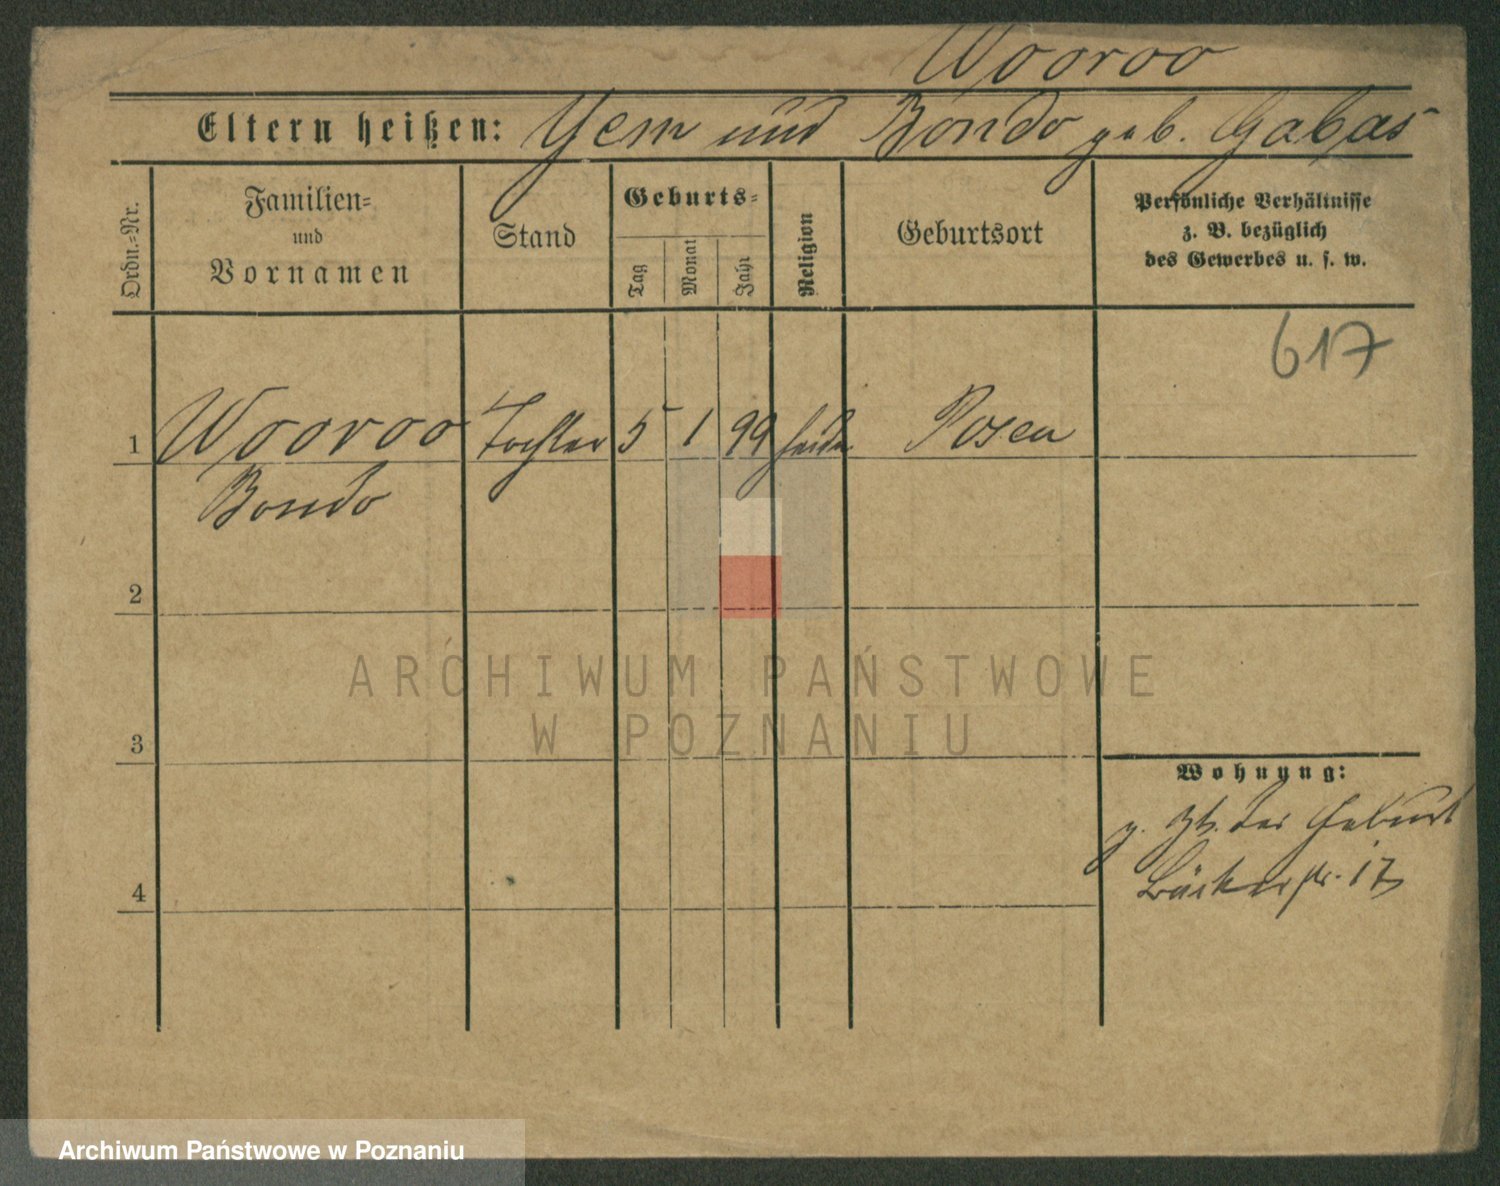 Wooroo
Eltern heißen: Yem und Bondo geb. Gabas
Ordn.-Nr.
Familien-
und
Vornamen
Stand
Geburts-
Tag
Monat
Jahr
Religion
Geburtsort
Persönliche Verhältnisse
z. B. bezüglich
des Gewerbes u. s. w.
617
1 Wooroo Tochter 5 1 99 heidn Posen
Bondo
2
3
4
Wohnung:
z. Zt. der Geburt
Bäckerstr. 17
ARCHIWUM PAŃSTWOWE
W POZNANIU
Archiwum Państwowe w Poznaniu